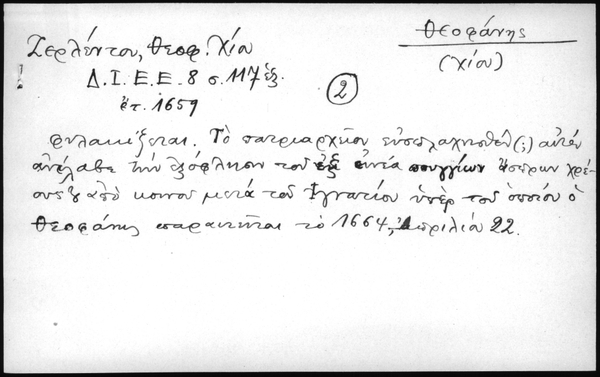 Θεοφάνης
(Χίου)
Ζερλέντου, Θεοφ. Χίου
Δ.Ι.Ε.Ε. 8 σ. 117 ἑξ.
ἔτ. 1659
2
φυλακίζεται. Τὸ πατριαρχεῖον εὐσπλαχνισθὲν (;) αὐτὸν
ἀνέλαβε τὴν ἐξόφλησιν τοῦ ἐξ ἐννέα πουγγίων ἄσπρων χρέ-
ους ἀπὸ κοινοῦ μετὰ τοῦ Ἰγνατίου ὑπὲρ τοῦ ὁποίου ὁ
Θεοφάνης παραιτεῖται τὸ 1664, Ἀπριλίου 22.